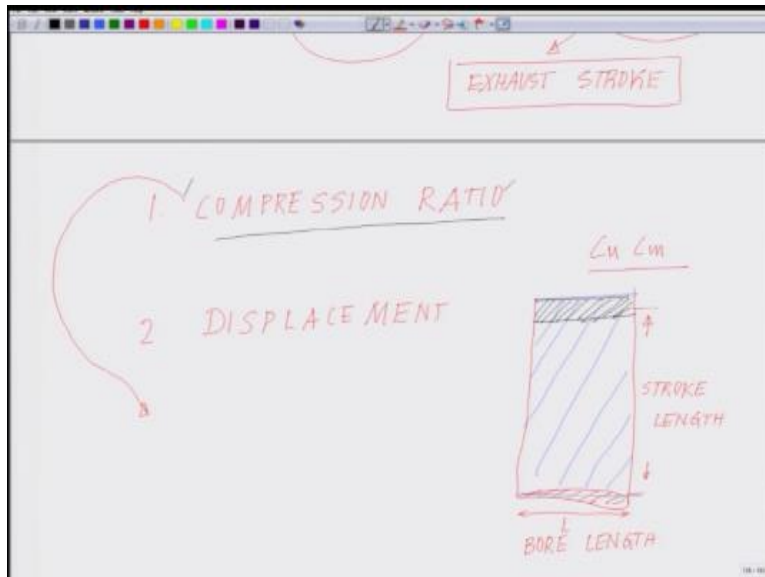 EXHAUST STROKE
1 COMPRESSION RATIO
Cu Cm
2 DISPLACEMENT
STROKE
LENGTH
BORE LENGTH